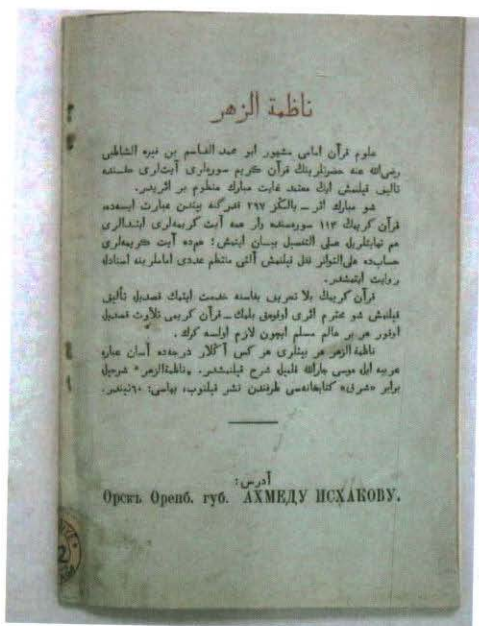 ناظمة الزهر
علوم قرآن امامى مشهور ابو محمد القاسم بن فيره الشاطبى
رضى الله عنه حضرتلرينك قرآن كريم سوره‌لرى آيت‌لرى حقنده
تأليف قيلنمش ايك معتمد غايت مبارك منظوم بر اثريدر.
شو مبارك اثر ــ يالكز ٢٩٧ قدرگنه بيتدن عبارت ايسه‌ده،
قرآن كريمك ١١٣ سوره‌سنده وار همه آيت كريمه‌لرى ابتدالرى
هم نهايتلريل على التفصيل بيان ايتمش؛ هم‌ده آيت كريمه‌لرى
حسابده على التواتر نقل قيلنمش آلتى منتظم عددى اماملرينه اسنادل
روايت ايتمشدر.
قرآن كريمك بلا تحريف بقاسنه خدمت ايتمك قصديل تأليف
قيلنمش شو محترم اثرى اوقومق بلمك ــ قرآن كريمى تلاوت قصديل
اوقور هر بر عالم مسلم ايچون لازم اولسه كرك.
ناظمة الزهر هر بيتلرى هر كس آكلار درجه‌ده آسان عباره
عربيه ايل موسى جارالله قلميل شرح قيلنمشدر. «ناظمة الزهر» شرحيل
برابر «شرق» كتابخانه‌سى طرفندن نشر قيلنوب، بهاسى: ٦٠ تيندر.
آدرس:
Орскъ Оренб. губ. АХМЕДУ ИСХАКОВУ.